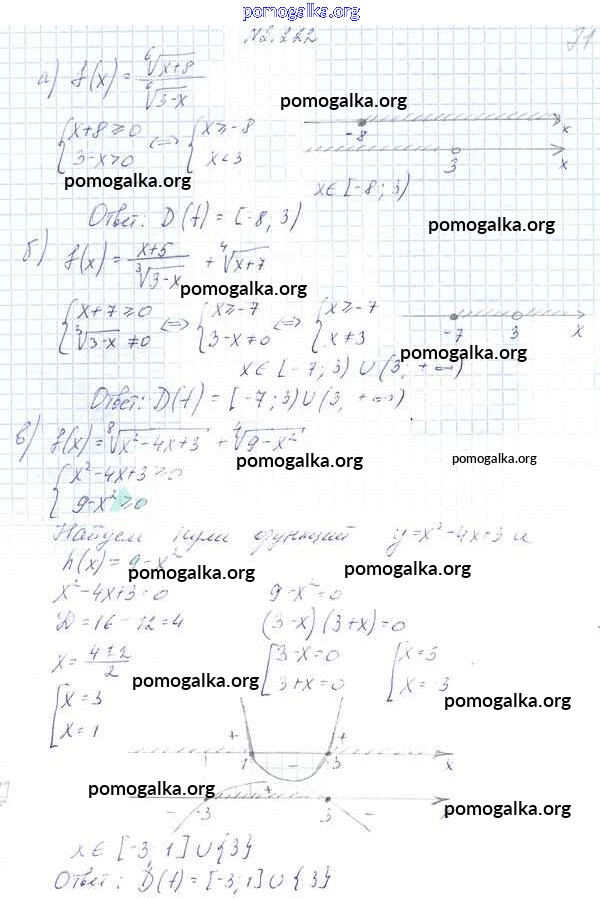 pomogalka.org
№2.222
а) f(x) = ⁶√(x+8) / ⁶√(3-x)
pomogalka.org
{x+8 ≥ 0 <=> {x ≥ -8
{3-x > 0 {x < 3
-8 x
3 x
pomogalka.org
x ∈ [-8; 3)
Ответ: D(f) = [-8, 3)
pomogalka.org
б) f(x) = (x+5) / ³√(3-x) + ⁴√(x+7)
pomogalka.org
{x+7 ≥ 0 <=> {x ≥ -7 <=> {x ≥ -7
{³√(3-x) ≠ 0 {3-x ≠ 0 {x ≠ 3
-7 3 x
pomogalka.org
x ∈ [-7; 3) ∪ (3; +∞)
Ответ: D(f) = [-7; 3) ∪ (3, +∞)
в) f(x) = ⁸√(x²-4x+3) + ⁴√(9-x²)
pomogalka.org
pomogalka.org
{x²-4x+3 ≥ 0
{9-x² ≥ 0
Найдем нули функций y = x²-4x+3 и
h(x) = 9-x²
pomogalka.org
pomogalka.org
x²-4x+3=0 9-x²=0
D = 16-12 = 4 (3-x)(3+x)=0
x = (4±2)/2 [3-x=0 [x=3
[3+x=0 [x=-3
pomogalka.org
pomogalka.org
[x=3
[x=1
+ +
1 - 3 x
pomogalka.org
+
- -3 3 - x
pomogalka.org
x ∈ [-3; 1] ∪ {3}
Ответ: D(f) = [-3; 1] ∪ {3}